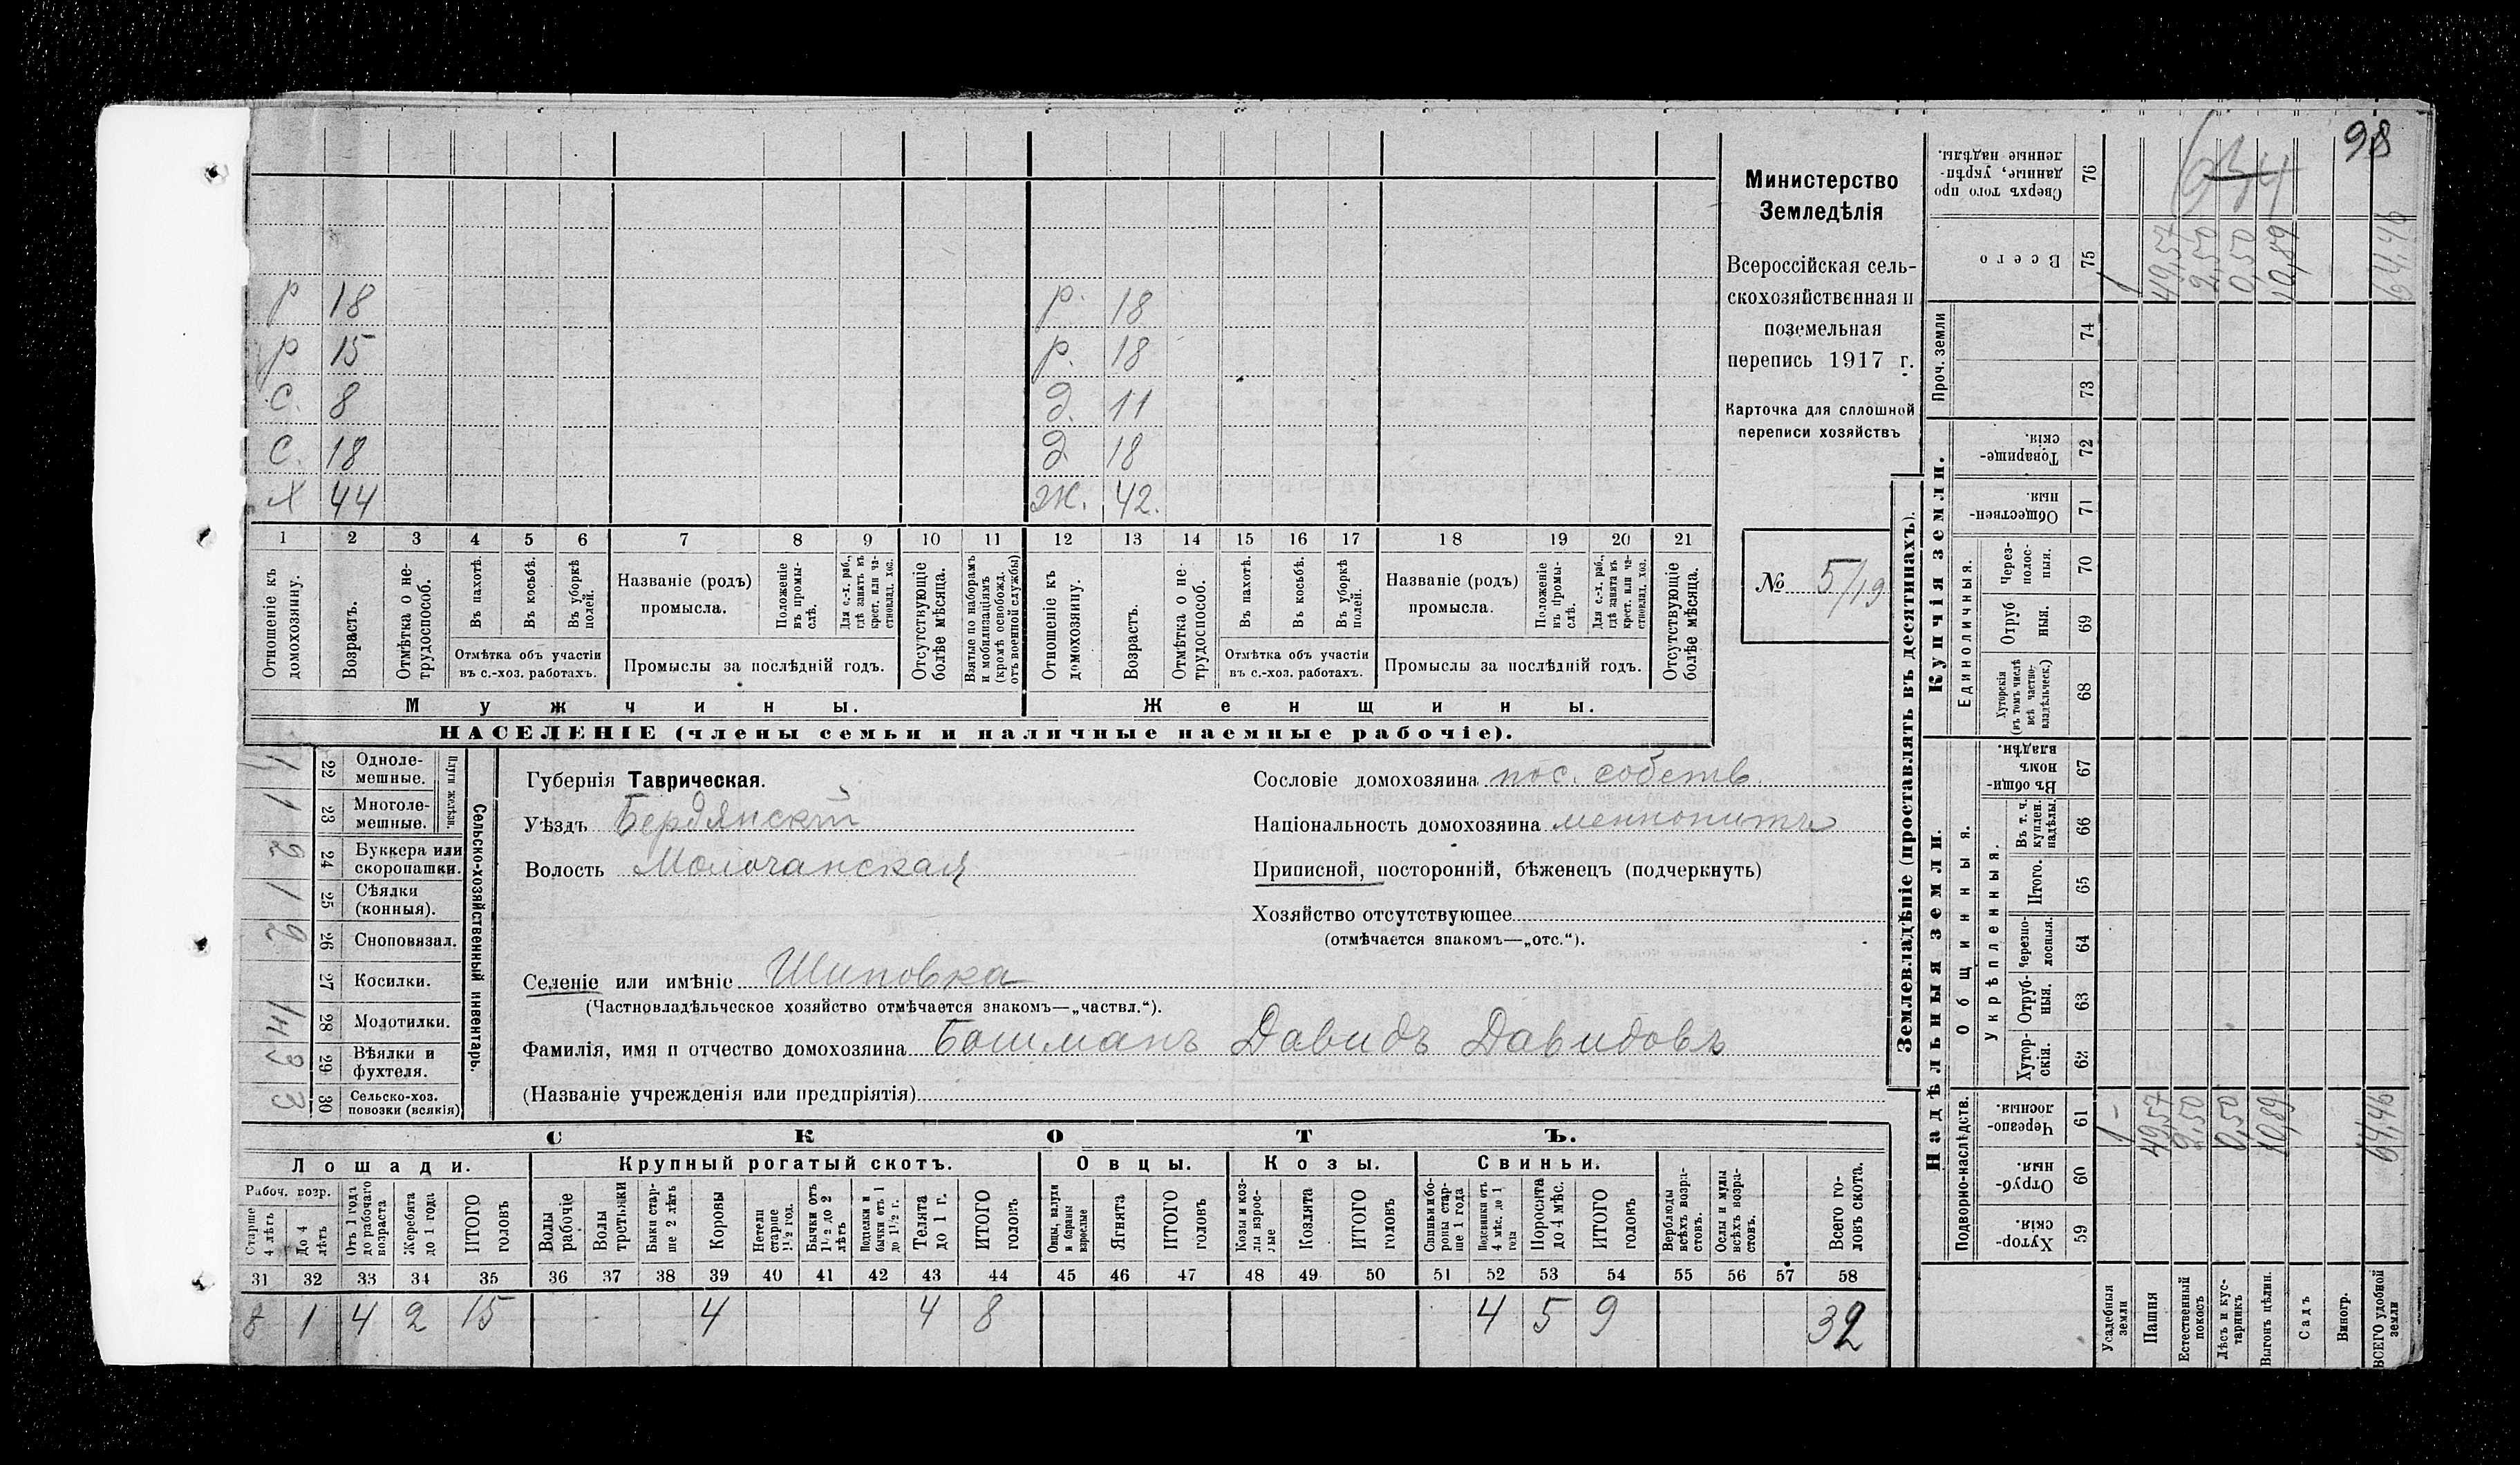 98
634
Министерство
Земледѣлія
Всероссійская сель-
скохозяйственная и
поземельная
перепись 1917 г.
Карточка для сплошной
переписи хозяйствъ
№ 5/19
р 18 р. 18
р 15 р. 18
с. 8 д. 11
с. 18 д 18
х 44 ж. 42.
1 2 3 4 5 6 7 8 9 10 11 12 13 14 15 16 17 18 19 20 21
Отношеніе къ домохозяину.
Возрастъ.
Отмѣтка о не-трудоспособ.
Въ пахотѣ.
Въ косьбѣ.
Въ уборкѣ полей.
Отмѣтка объ участіи
въ с.-хоз. работахъ.
Названіе (родъ)
промысла.
Положеніе въ промы-слѣ.
Для с.-х. раб., гдѣ занятъ въ крест. или ча-стновлад. хоз.
Промыслы за послѣдній годъ.
Отсутствующіе болѣе мѣсяца.
Взятые по наборамъ и мобилизаціямъ (кромѣ освобожд. отъ военной службы)
Отношеніе къ домохозяину.
Возрастъ.
Отмѣтка о не-трудоспособ.
Въ пахотѣ.
Въ косьбѣ.
Въ уборкѣ полей.
Отмѣтка объ участіи
въ с.-хоз. работахъ.
Названіе (родъ)
промысла.
Положеніе въ промы-слѣ.
Для с.-х. раб., гдѣ занята въ крест. или ча-стновлад. хоз.
Промыслы за послѣдній годъ.
Отсутствующіе болѣе мѣсяца.
Мужчины. Женщины.
НАСЕЛЕНІЕ (члены семьи и наличные наемные рабочіе).
Сельско-хозяйственный инвентарь.
Плуги желѣзн.
22 Одноле-мешные.
1 23 Многоле-мешные.
2 24 Буккера или скоропашки.
1 25 Сѣялки (конныя).
2 26 Сноповязал.
27 Косилки.
28 Молотилки.
3 29 Вѣялки и фухтеля.
3 30 Сельско-хоз. повозки (всякія)
Губернія Таврическая.
Уѣздъ Бердянскій
Волость Молочанская
Селеніе или имѣніе Шиповка
(Частновладѣльческое хозяйство отмѣчается знакомъ—„частвл.“).
Фамилія, имя и отчество домохозяина Бошманъ Давидъ Давидовъ
(Названіе учрежденія или предпріятія)
Сословіе домохозяина пос. собств.
Національность домохозяина меннонитъ
Приписной, посторонній, бѣженецъ (подчеркнуть)
Хозяйство отсутствующее
(отмѣчается знакомъ—„отс.“).
СКОТЪ.
Лошади. Крупный рогатый скотъ. Овцы. Козы. Свиньи.
Рабоч. возр.
Старше 4 лѣтъ
До 4 лѣтъ
Отъ 1 года до рабочаго возраста
Жеребята до 1 года
ИТОГО головъ
Волы рабочіе
Волы третьяки
Быки стар-ше 2 лѣтъ
Коровы
Нетели старше 1 1/2 год.
Бычки отъ 1 1/2 до 2 лѣтъ
Подтелки и бычки отъ 1 до 1 1/2 г.
Телята до 1 г.
ИТОГО головъ
Овцы, валухи и бараны взрослые
Ягнята
ИТОГО головъ
Козы и коз-лы взрос-лые
Козлята
ИТОГО головъ
Свиньи бо-ровы стар-ше 1 года
Подсвинки отъ 4 мѣс. до 1 года
Поросята до 4 мѣс.
ИТОГО головъ
Верблюды всѣхъ возра-стовъ.
Ослы и мулы всѣхъ возра-стовъ.
Всего го-ловъ скота.
31 32 33 34 35 36 37 38 39 40 41 42 43 44 45 46 47 48 49 50 51 52 53 54 55 56 57 58
8 1 4 2 15 4 4 8 4 5 9 32
Землевладѣніе (проставлять въ десятинахъ).
Надѣльныя земли. Купчія земли.
Подворно-наслѣдств. Общинныя. Единоличныя. Проч. земли
Укрѣпленныя.
Хутор-скія. 59
Отруб-ныя. 60
Черезпо-лосныя. 61
Хутор-скія. 62
Отруб-ныя. 63
Черезпо-лосныя. 64
Итого. 65
Въ т. ч. куплен. надѣлы. 66
Въ общи-номъ владѣн. 67
Хуторскія (въ томъ числѣ всѣ частно-владѣльческ.) 68
Отруб ныя. 69
Через-полос-ныя. 70
Обществен-ныя. 71
Товарище-скія. 72
73
74
Всего 75
Сверхъ того про данные, укрѣп-ленные надѣлы. 76
Усадебныя земли 1 1
Пашня 49,57 49,57
Естественный покосъ 2,50 2,50
Лѣсъ и кус-тарникъ 0,50 0,50
Выгонъ цѣлин. 10,89 10,89
Садъ
Виногр.
ВСЕГО удобной земли 64,46 64,46